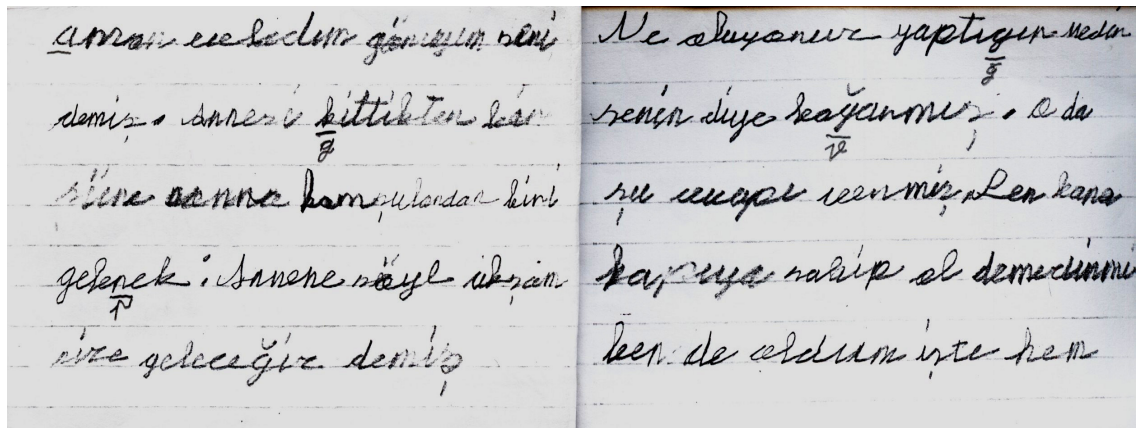 aman evladım göreyim seni
demiş. Annesi kittikten bir
süre sonra komşulardan biri
gelerek: Annene söyl akşam
size geleceğiz demiş
Ne oluyonuz yaptıgın nedir
senin diye koğarmış. O da
şu cevapı vermiş. Sen bana
kapıya sahip ol demedinmi
ben de oldum işte hem